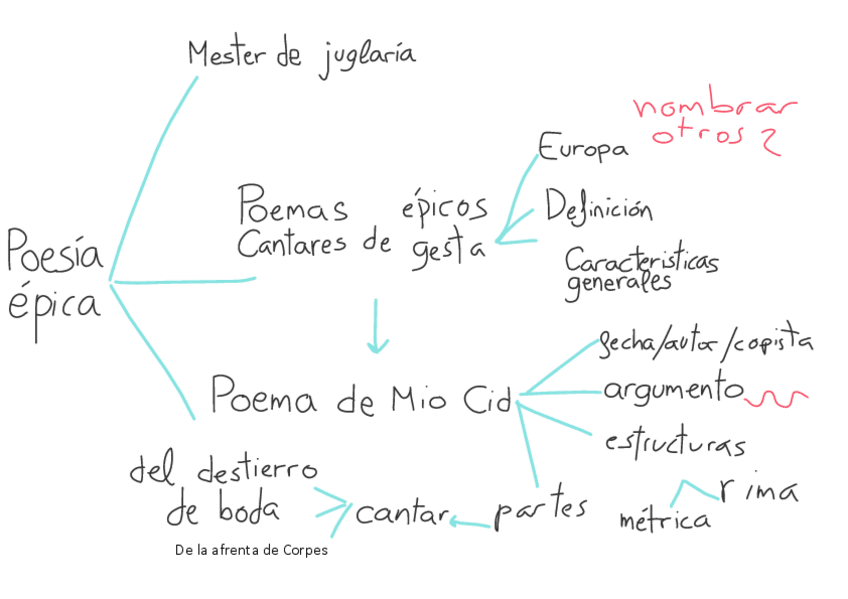 Mester de juglaría
nombrar
otros ?
Europa
Poemas épicos
Cantares de gesta
Definición
Caracteristicas
generales
Poesía
épica
fecha/autor/copista
Poema de Mio Cid
argumento
estructuras
del destierro
de boda
cantar
partes
métrica
rima
De la afrenta de Corpes